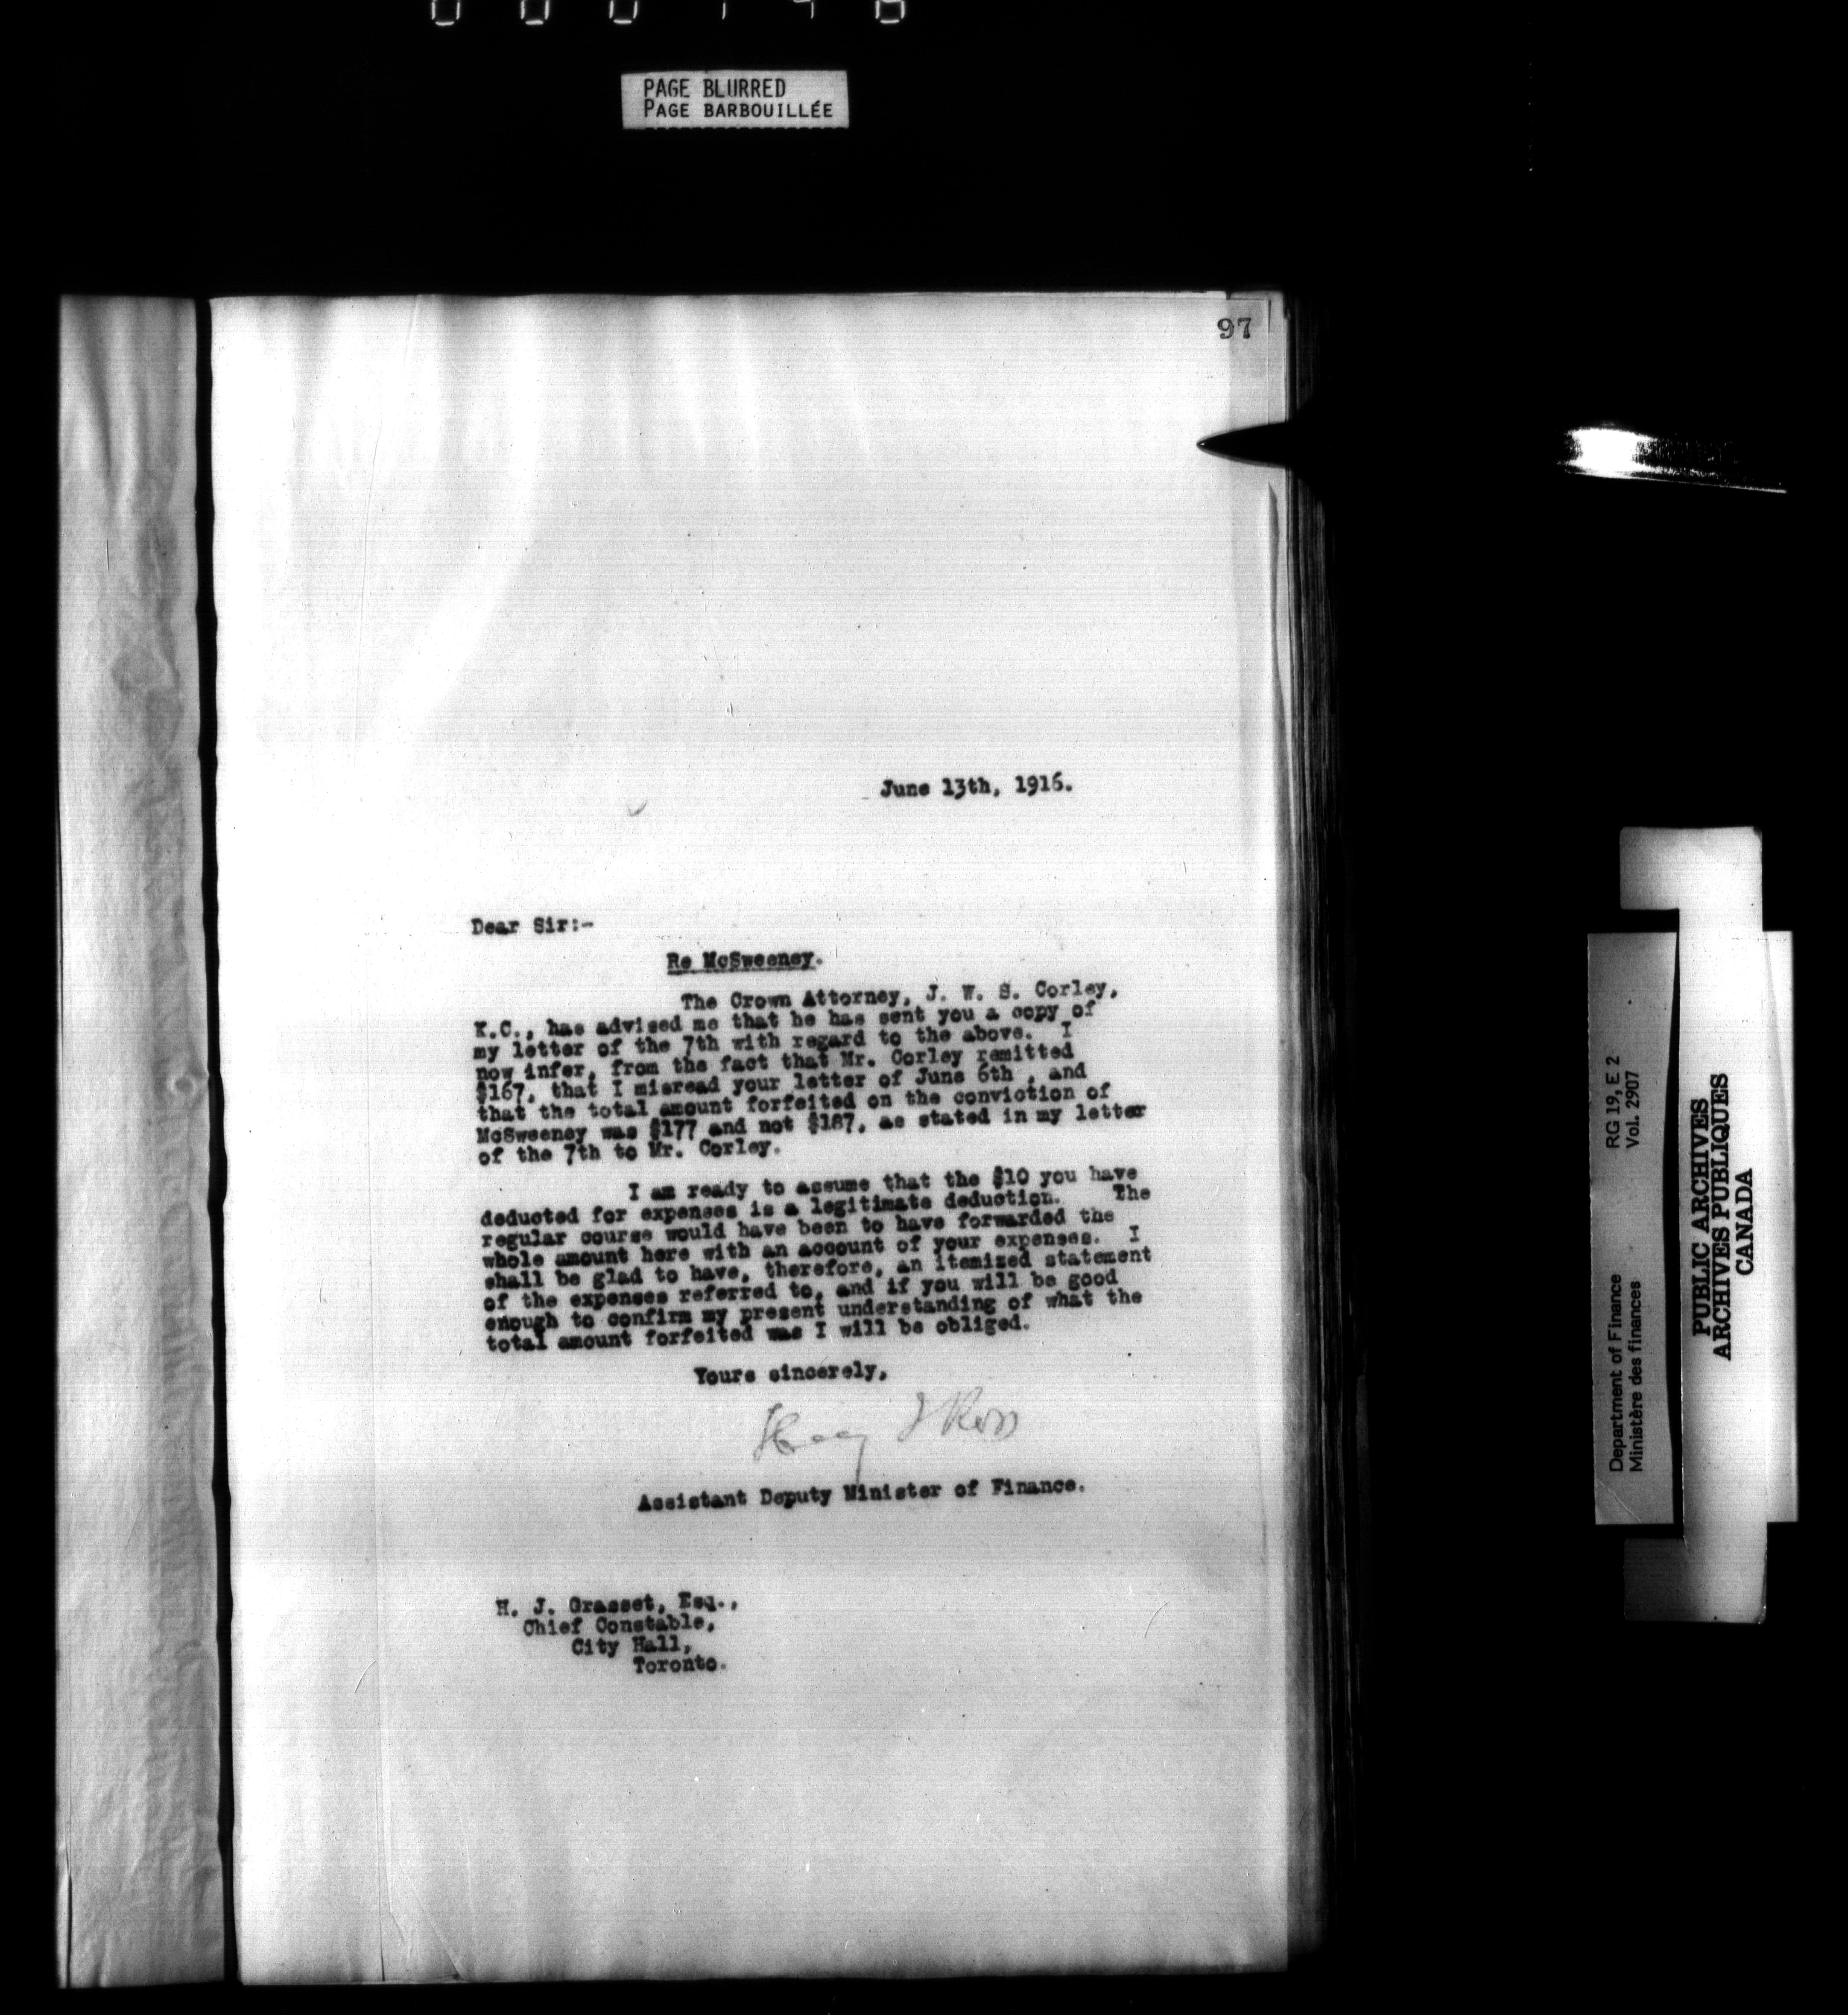 PAGE BLURRED
PAGE BARBOUILLÉE
97
June 13th, 1916.
Dear Sir:-
Re McSweeney.
The Crown Attorney, J. W. S. Corley,
K.C., has advised me that he has sent you a copy of
my letter of the 7th with regard to the above. I
now infer, from the fact that Mr. Corley remitted
$167, that I misread your letter of June 6th , and
that the total amount forfeited on the conviction of
McSweeney was $177 and not $187, as stated in my letter
of the 7th to Mr. Corley.
I am ready to assume that the $10 you have
deducted for expenses is a legitimate deduction. The
regular course would have been to have forwarded the
whole amount here with an account of your expenses. I
shall be glad to have, therefore, an itemized statement
of the expenses referred to, and if you will be good
enough to confirm my present understanding of what the
total amount forfeited was I will be obliged.
Yours sincerely,
Ross
Assistant Deputy Minister of Finance.
H. J. Grasset, Esq.,
Chief Constable,
City Hall,
Toronto.
Department of Finance RG 19, E 2
Ministère des finances Vol. 2907
PUBLIC ARCHIVES
ARCHIVES PUBLIQUES
CANADA